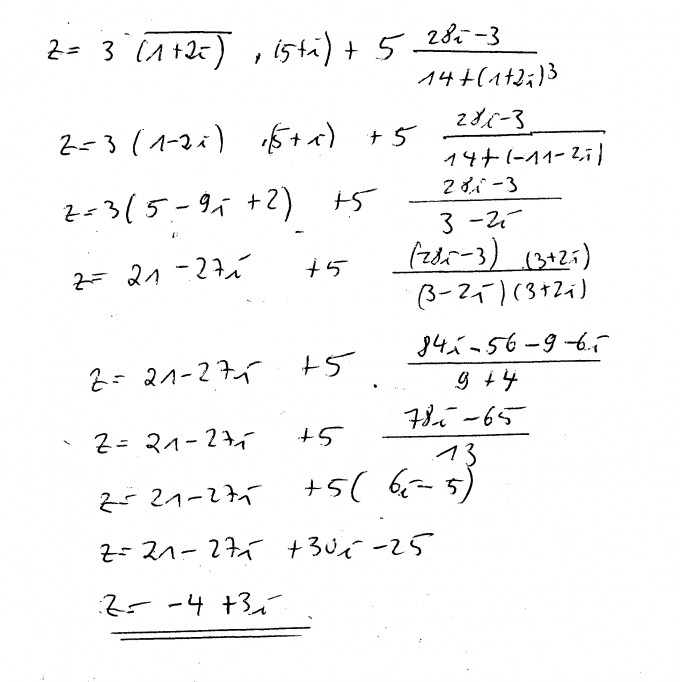 z = 3 \overline{(1+2i)} · (5+i) + 5 \frac{28i-3}{14+(1+2i)^3}
z = 3 (1-2i) · (5+i) + 5 \frac{28i-3}{14+(-11-2i)}
z = 3(5-9i+2) + 5 \frac{28i-3}{3-2i}
z = 21-27i + 5 \frac{(28i-3) · (3+2i)}{(3-2i)(3+2i)}
z = 21-27i + 5 · \frac{84i-56-9-6i}{9+4}
z = 21-27i + 5 \frac{78i-65}{13}
z = 21-27i + 5(6i-5)
z = 21-27i + 30i - 25
z = -4+3i